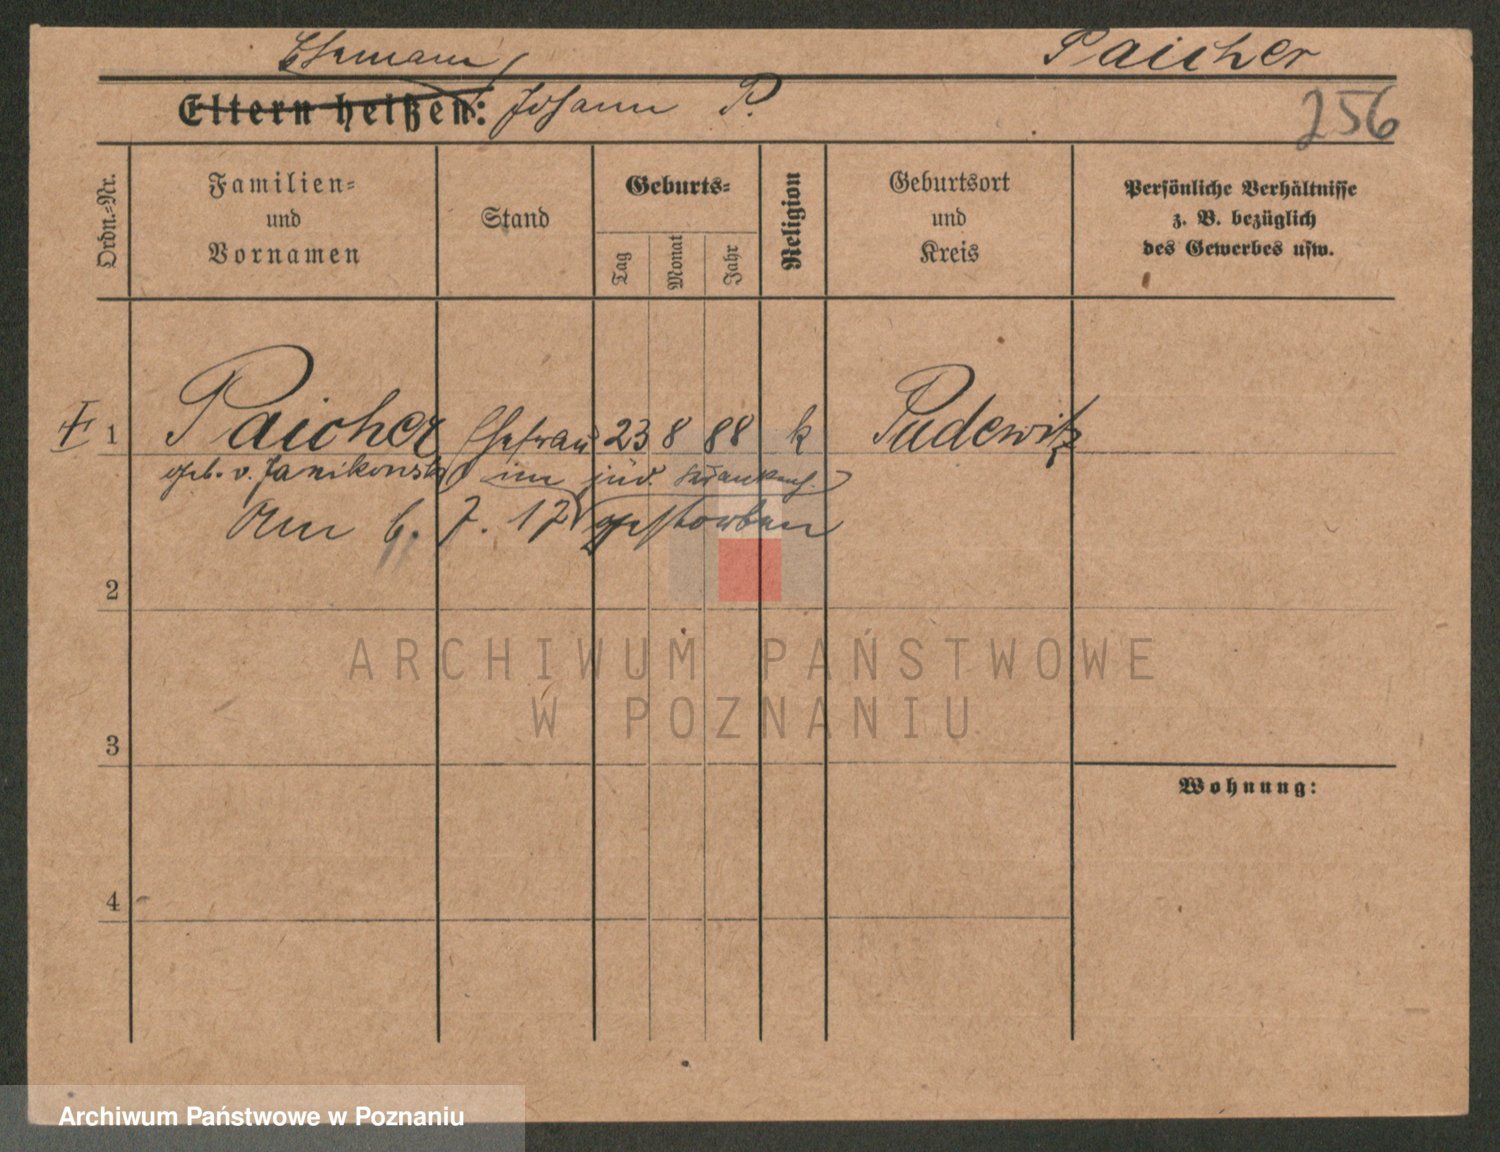 Ehemann
Paicher
Eltern heißen: Johann P.
256
Ordn.-Nr.
Familien-
und
Vornamen
Stand
Geburts-
Tag
Monat
Jahr
Religion
Geburtsort
und
Kreis
Persönliche Verhältnisse
z. B. bezüglich
des Gewerbes usw.
1 Paicher Ehefrau 23 8 88 k Pudewitz
geb. v. Janikowski im jüd. Krankenh.
Am 6. 7. 17 gestorben
2
ARCHIWUM PAŃSTWOWE
W POZNANIU
3
Wohnung:
4
Archiwum Państwowe w Poznaniu